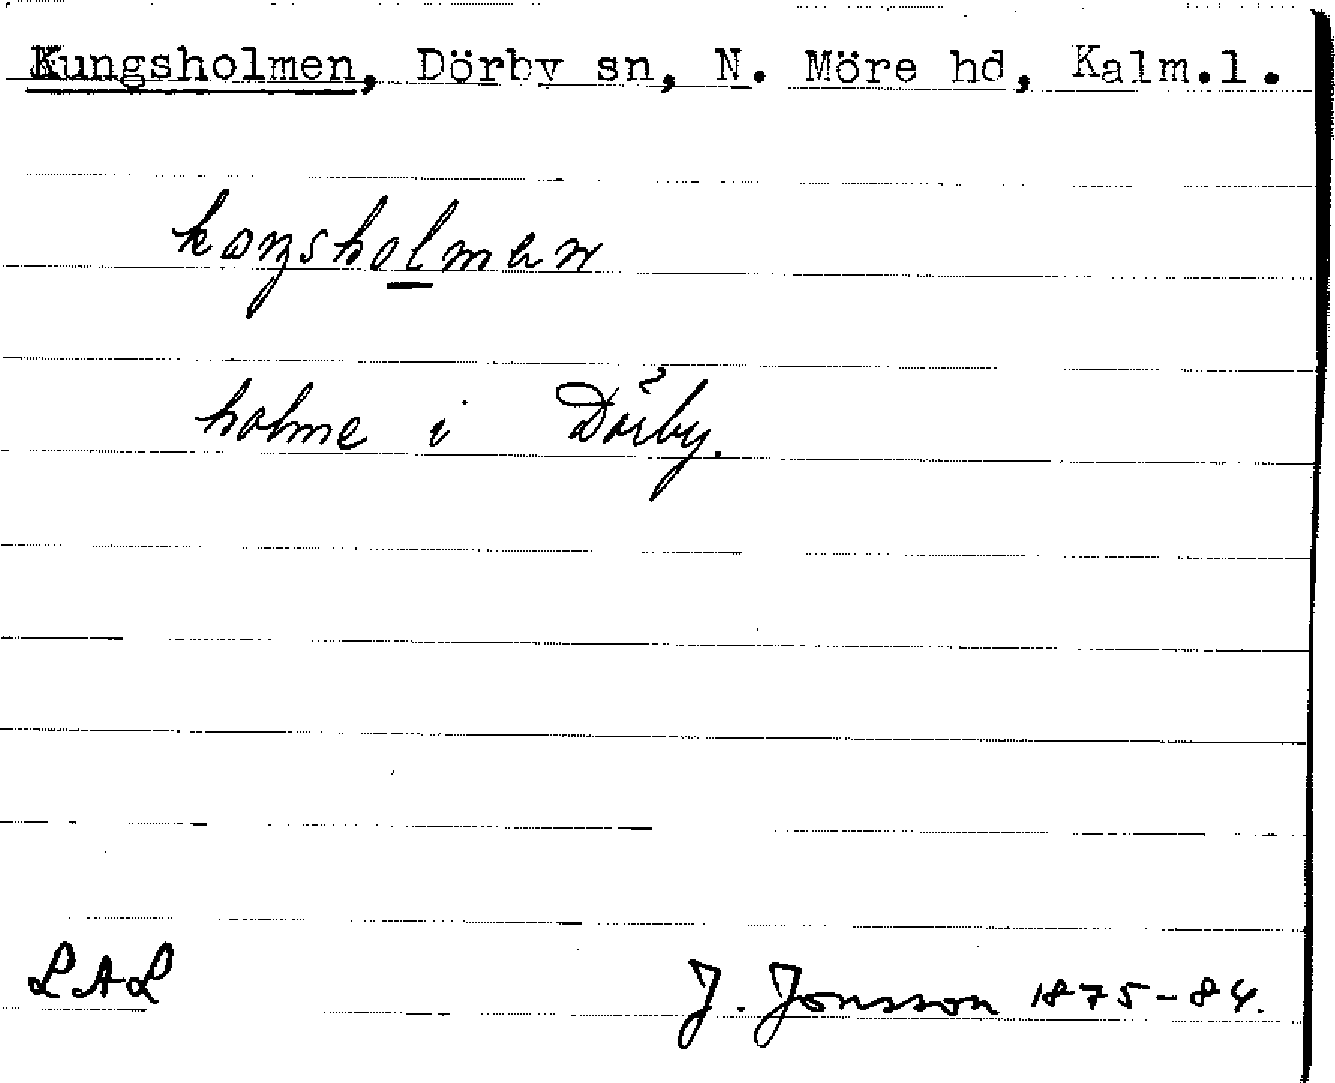 Kungsholmen, Dörby sn, N. Möre hd, Kalm.l.
kaŋsholmen
holme i Dörby.
LAL
J. Jonsson 1875-84.